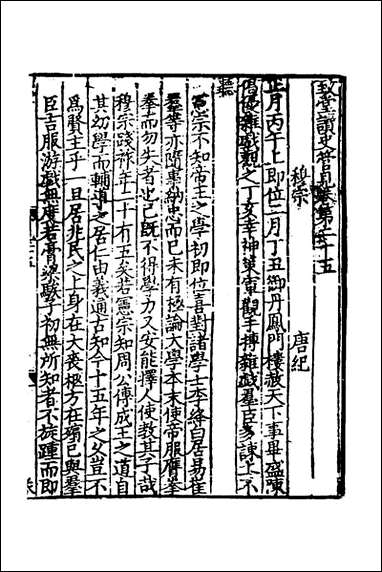 致堂讀史管見卷第二十五
穆宗 唐紀
正月丙午上即位二月丁丑御丹鳳門樓赦天下事畢盛陳
倡優雜戲觀之丁亥幸神策軍觀手搏雜戲羣臣多諫上不
聽
憲宗不知帝王之學初即位喜對諸學士李絳白居易崔
羣等亦隨事納忠而已未有極論大學本末使帝服膺拳
拳而勿失者也己既不得學力又安能擇人使教其子哉
穆宗踐祚年二十有五矣若憲宗知周公傅成王之道自
其幼學而輔導之居仁由義通古知今十五年之久豈不
爲賢主乎 且居兆民之上身在大喪柩方在殯已與羣
臣吉服游戲無度若膏粱騃子初無所知者不旋踵而即